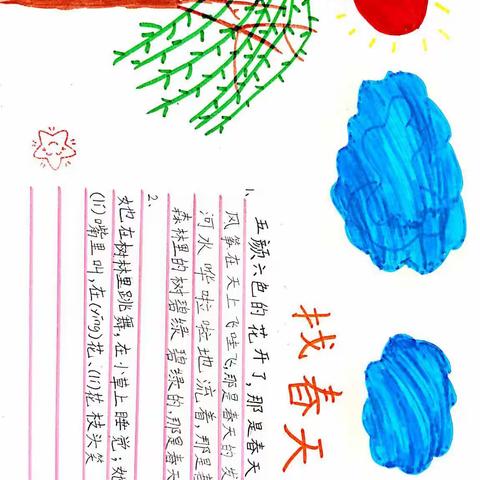 找春天
1、五颜六色的花开了,那是春天
风筝在天上飞哇飞,那是春天的
河水哗啦啦地流着,那是
森林里的树碧绿碧绿的,那是春天
2、她在树林里跳舞,在小草上睡觉;她
(lí)嘴里叫,在(yīng)花、(lí)花枝头笑